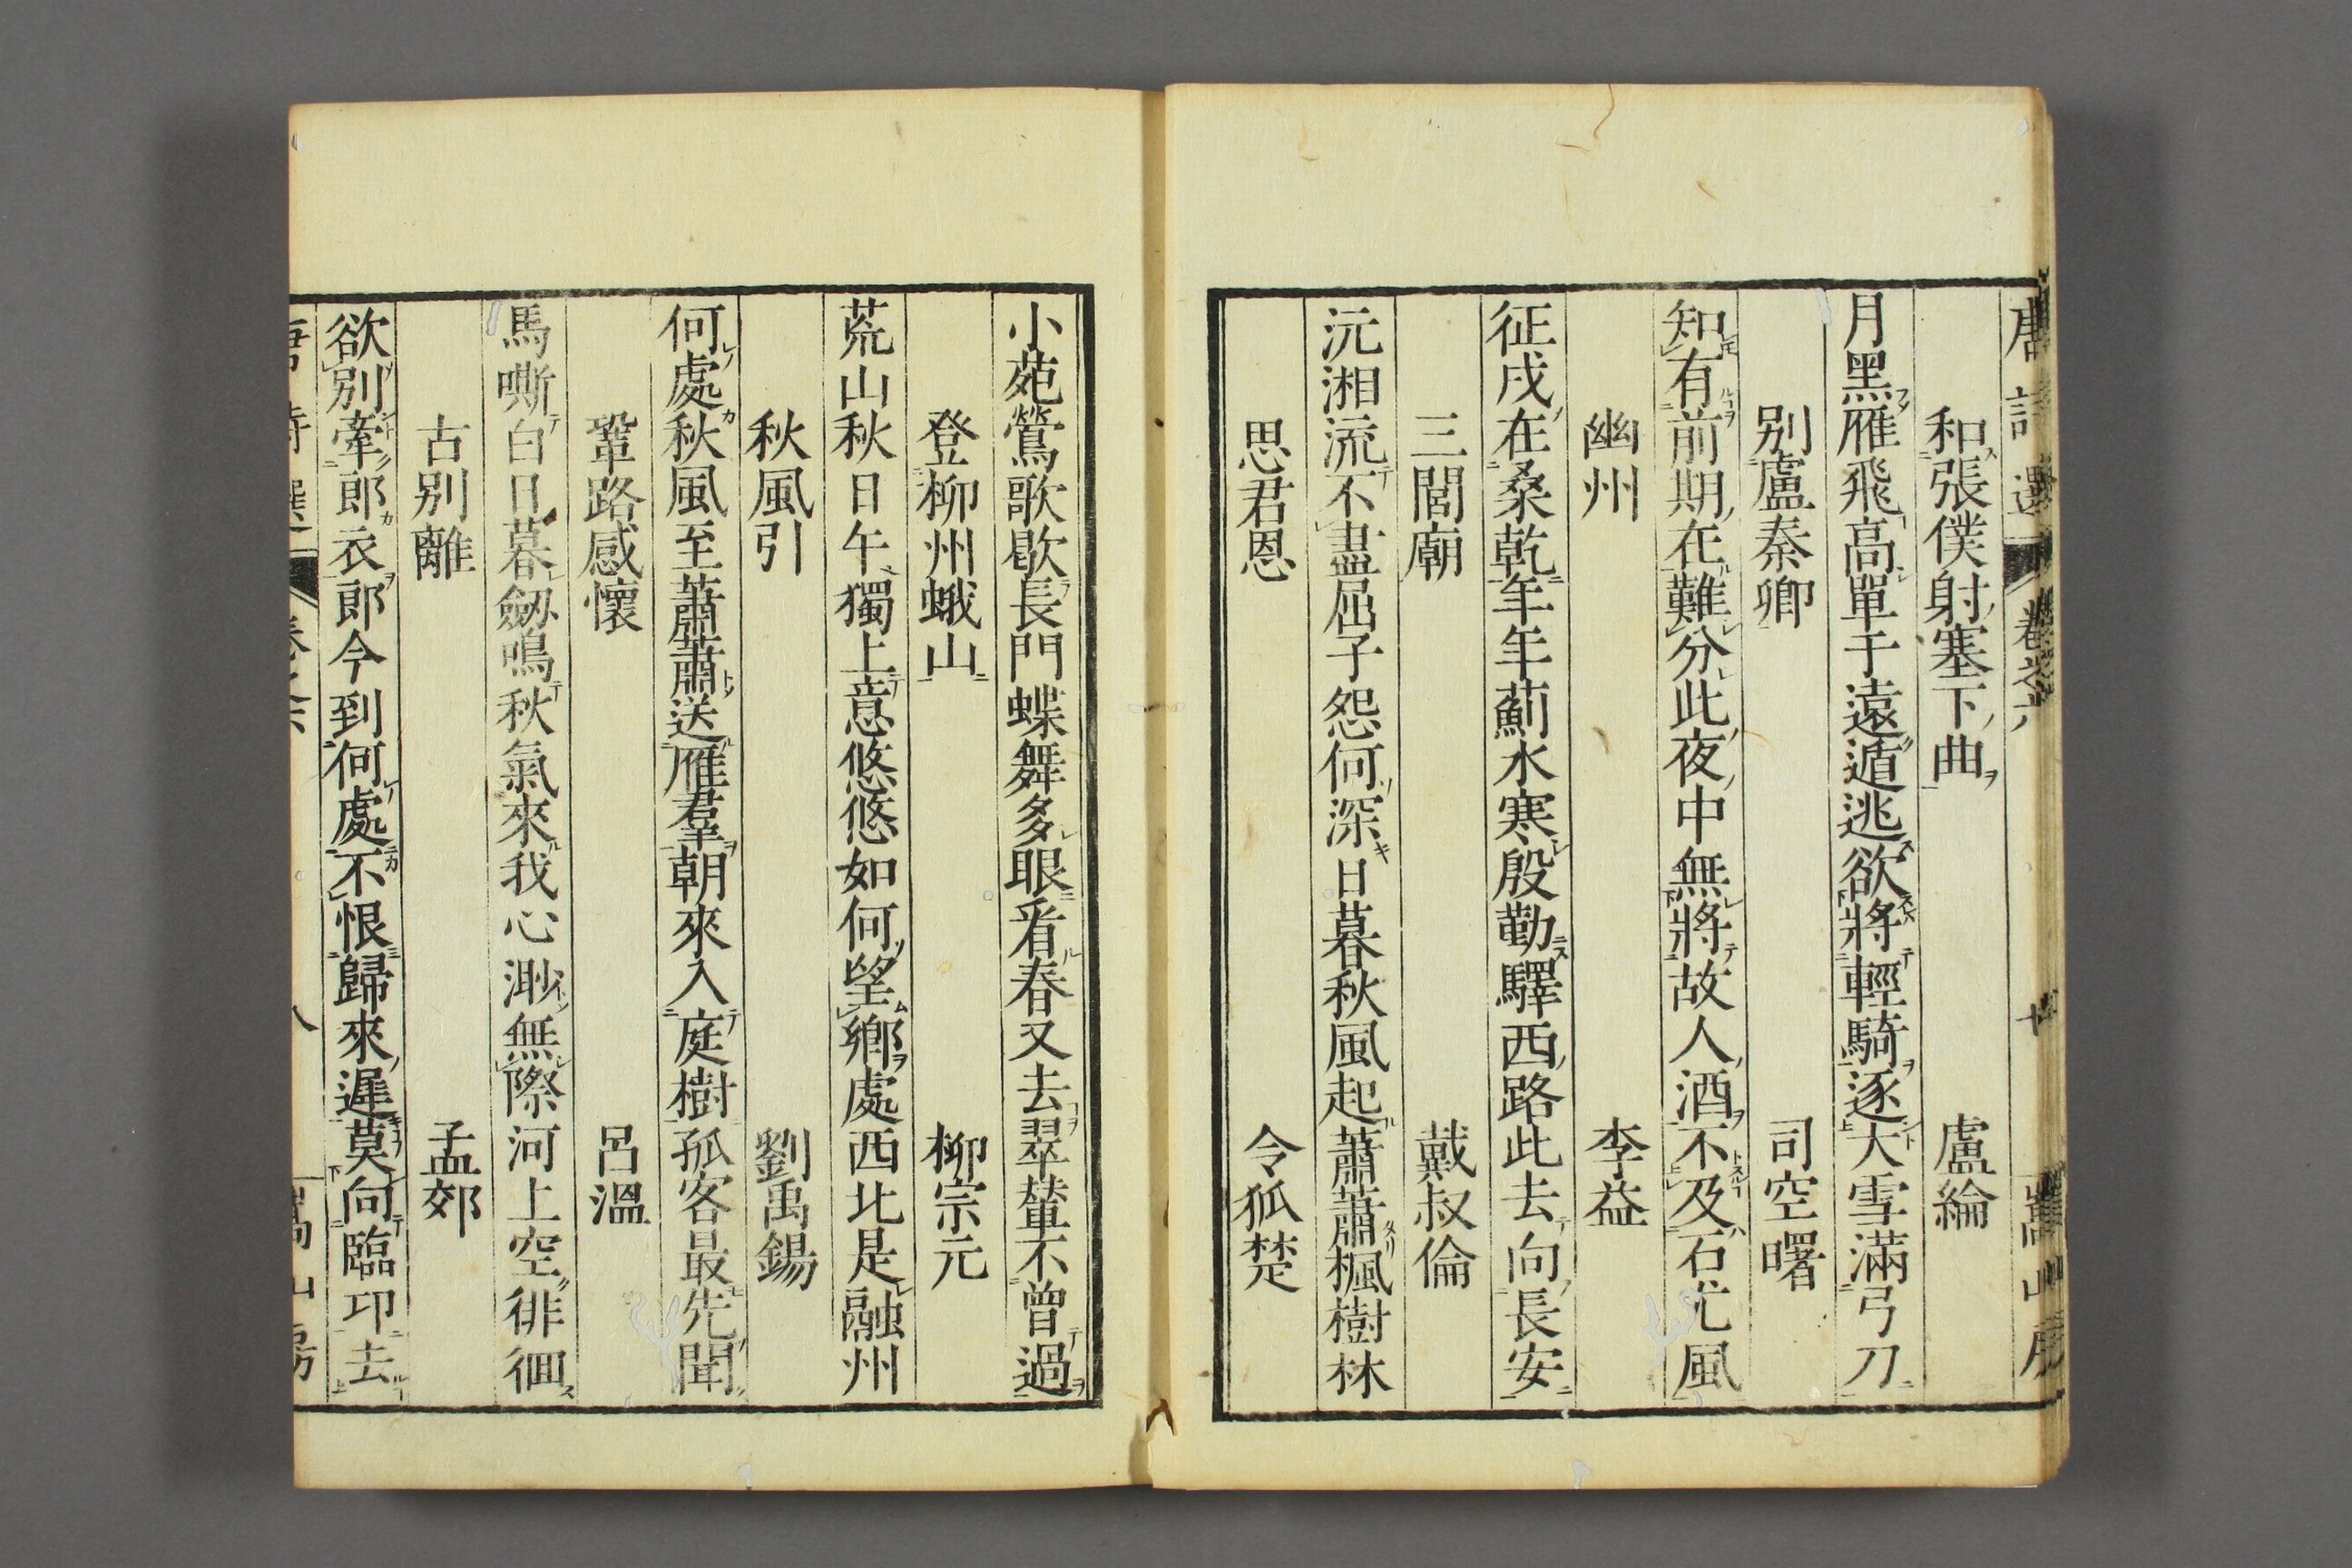 唐詩選 卷之六 七 嵩山房
和張僕射塞下曲 盧綸
月黑雁飛高單于遠遁逃欲將輕騎逐大雪滿弓刀
別盧秦卿 司空曙
知有前期在難分此夜中無將故人酒不及石尤風
幽州 李益
征戍在桑乾年年薊水寒殷勤驛西路此去向長安
三閭廟 戴叔倫
沅湘流不盡屈子怨何深日暮秋風起蕭蕭楓樹林
思君恩 令狐楚
小苑鶯歌歇長門蝶舞多眼看春又去翠輦不曾過
登柳州蛾山 柳宗元
荒山秋日午獨上意悠悠如何望鄉處西北是融州
秋風引 劉禹錫
何處秋風至蕭蕭送雁羣朝來入庭樹孤客最先聞
鞏路感懷 呂溫
馬嘶白日暮劒鳴秋氣來我心渺無際河上空徘徊
古別離 孟郊
欲別牽郎衣郎今到何處不恨歸來遲莫向臨卭去
唐詩選 卷之六 八 嵩山房